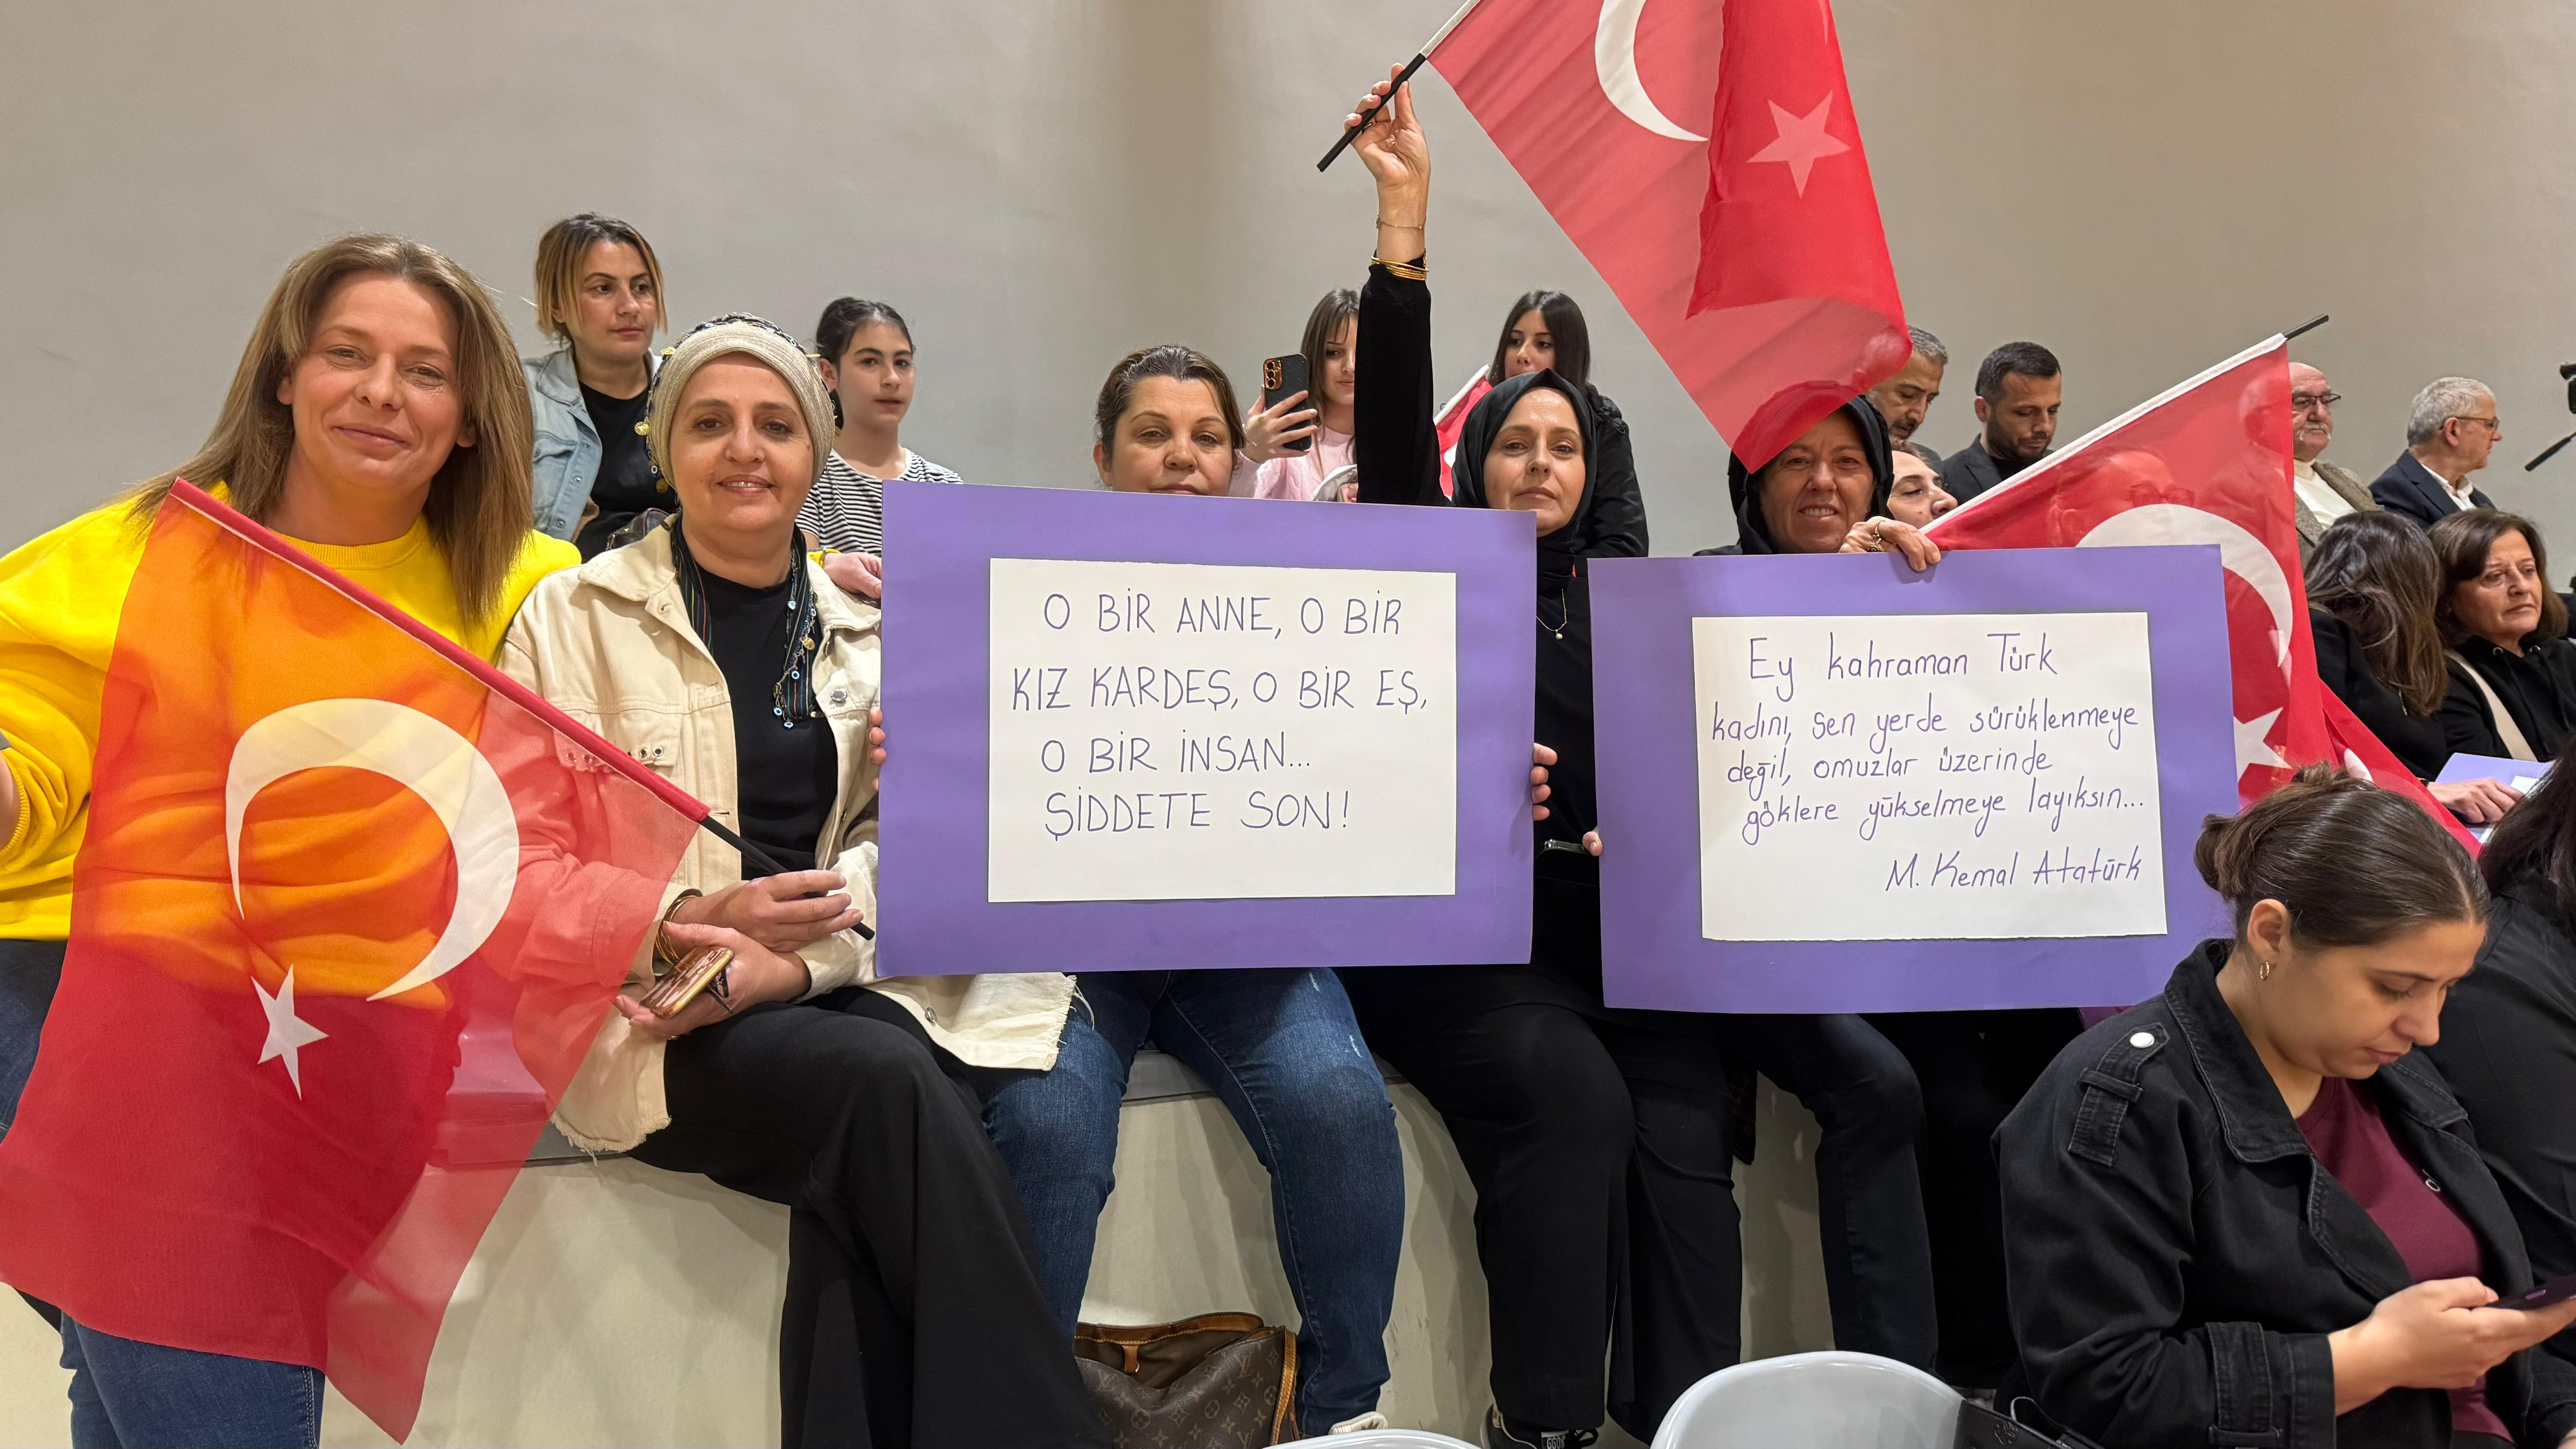 O BİR ANNE, O BİR
KIZ KARDEŞ, O BİR EŞ,
O BİR İNSAN...
ŞİDDETE SON!
Ey kahraman Türk
kadını, sen yerde sürüklenmeye
değil, omuzlar üzerinde
göklere yükselmeye layıksın...
M. Kemal Atatürk